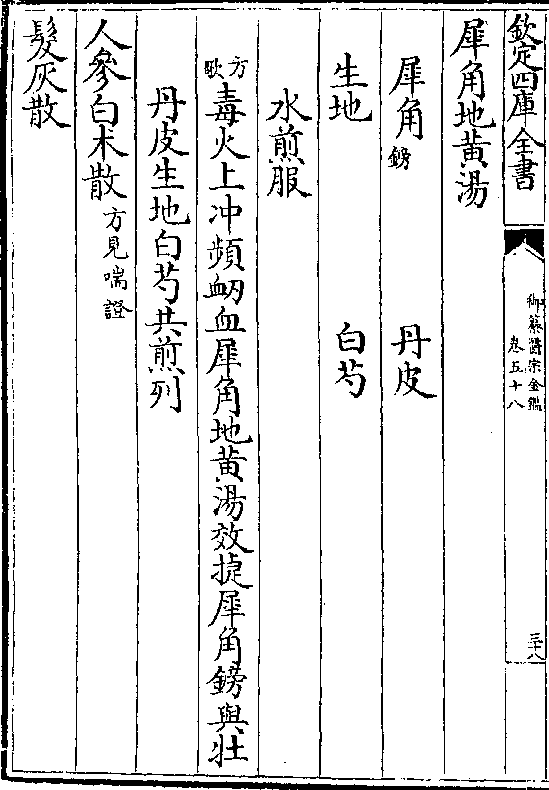 欽定四庫全書
御纂醫宗金鑑
卷五十八
三十八
犀角地黃湯
犀角鎊　丹皮
生地　白芍
水煎服
方歌毒火上冲頻衂血犀角地黃湯效㨗犀角鎊與牡
丹皮生地白芍共煎列
人參白术散方見喘證
髮灰散